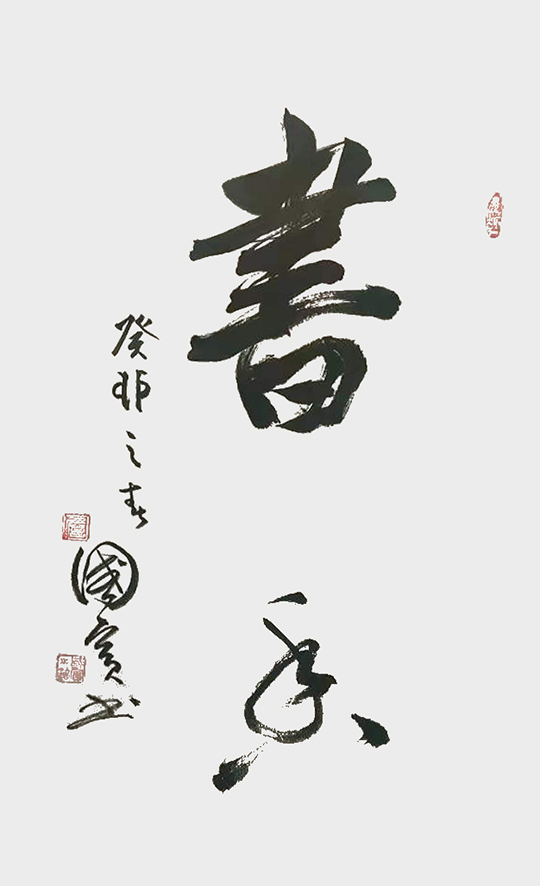 書
癸卯之春
國賓书